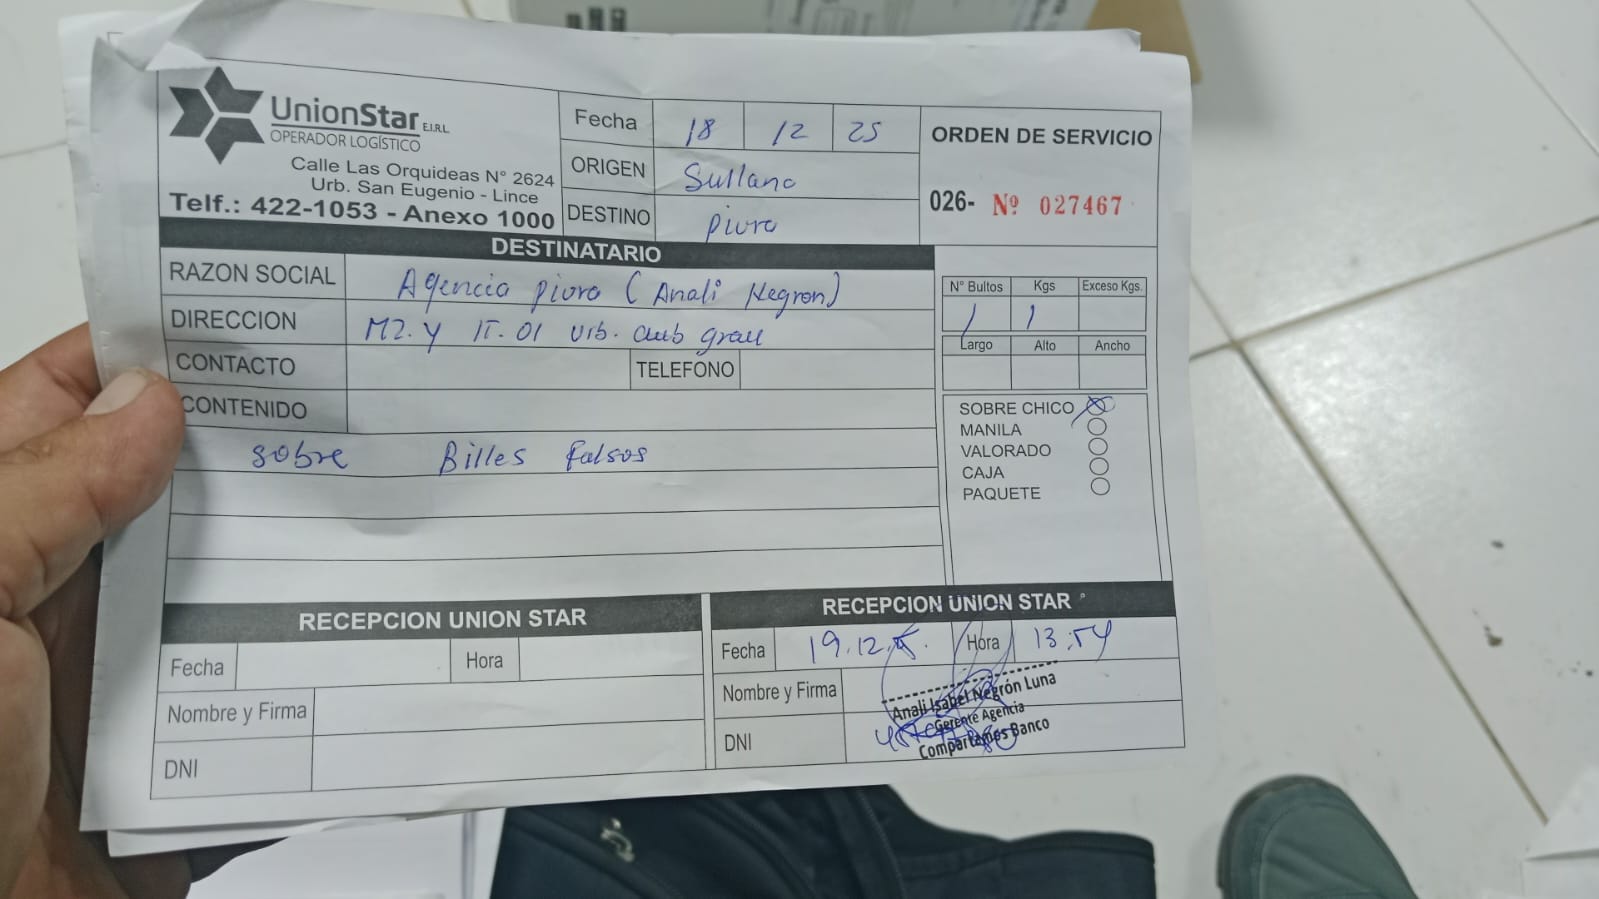 UnionStar E.I.R.L.
OPERADOR LOGÍSTICO
Calle Las Orquideas N° 2624
Urb. San Eugenio - Lince
Telf.: 422-1053 - Anexo 1000
Fecha 18 12 25
ORIGEN Sullana
DESTINO Piura
ORDEN DE SERVICIO
026- Nº 027467
DESTINATARIO
RAZON SOCIAL Agencia Piura (Anali Negron)
DIRECCION MZ. Y lT. 01 Urb. club grau
CONTACTO TELEFONO
CONTENIDO
sobre Billes falsos
N° Bultos Kgs Exceso Kgs.
1 1
Largo Alto Ancho
SOBRE CHICO
MANILA
VALORADO
CAJA
PAQUETE
RECEPCION UNION STAR
Fecha Hora
Nombre y Firma
DNI
RECEPCION UNION STAR
Fecha 19.12. Hora 13:54
Nombre y Firma
Anali Isabel Negrón Luna
Gerente Agencia
DNI
Compartamos Banco